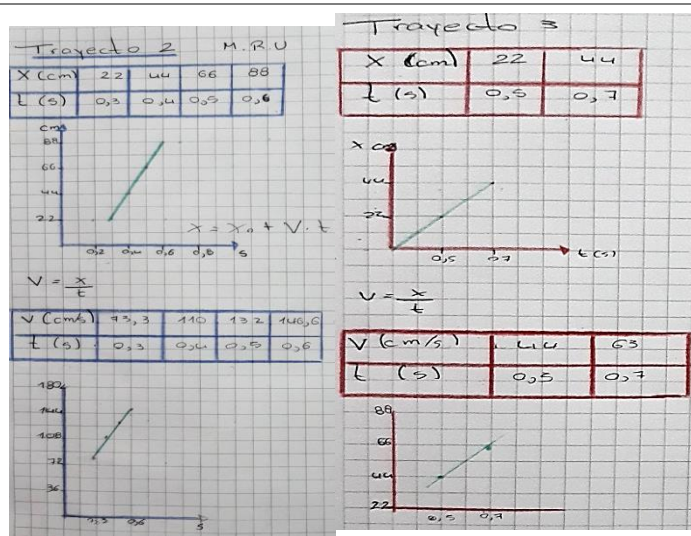 Trayecto 2 M.R.U
X (cm) 22 44 66 88
t (s) 0,3 0,4 0,5 0,6
cms
88
66
44
22
0,2 0,4 0,6 0,8 s
X = X₀ + V · t
V = x/t
V (cm/s) 73,3 110 132 146,6
t (s) 0,3 0,4 0,5 0,6
180
144
108
72
36
0,3 0,6 s
Trayecto 3
X (cm) 22 44
t (s) 0,5 0,7
X cm
44
22
0,5 0,7 t (s)
V = x/t
V (cm/s) 44 63
t (s) 0,5 0,7
88
66
44
22
0,5 0,7